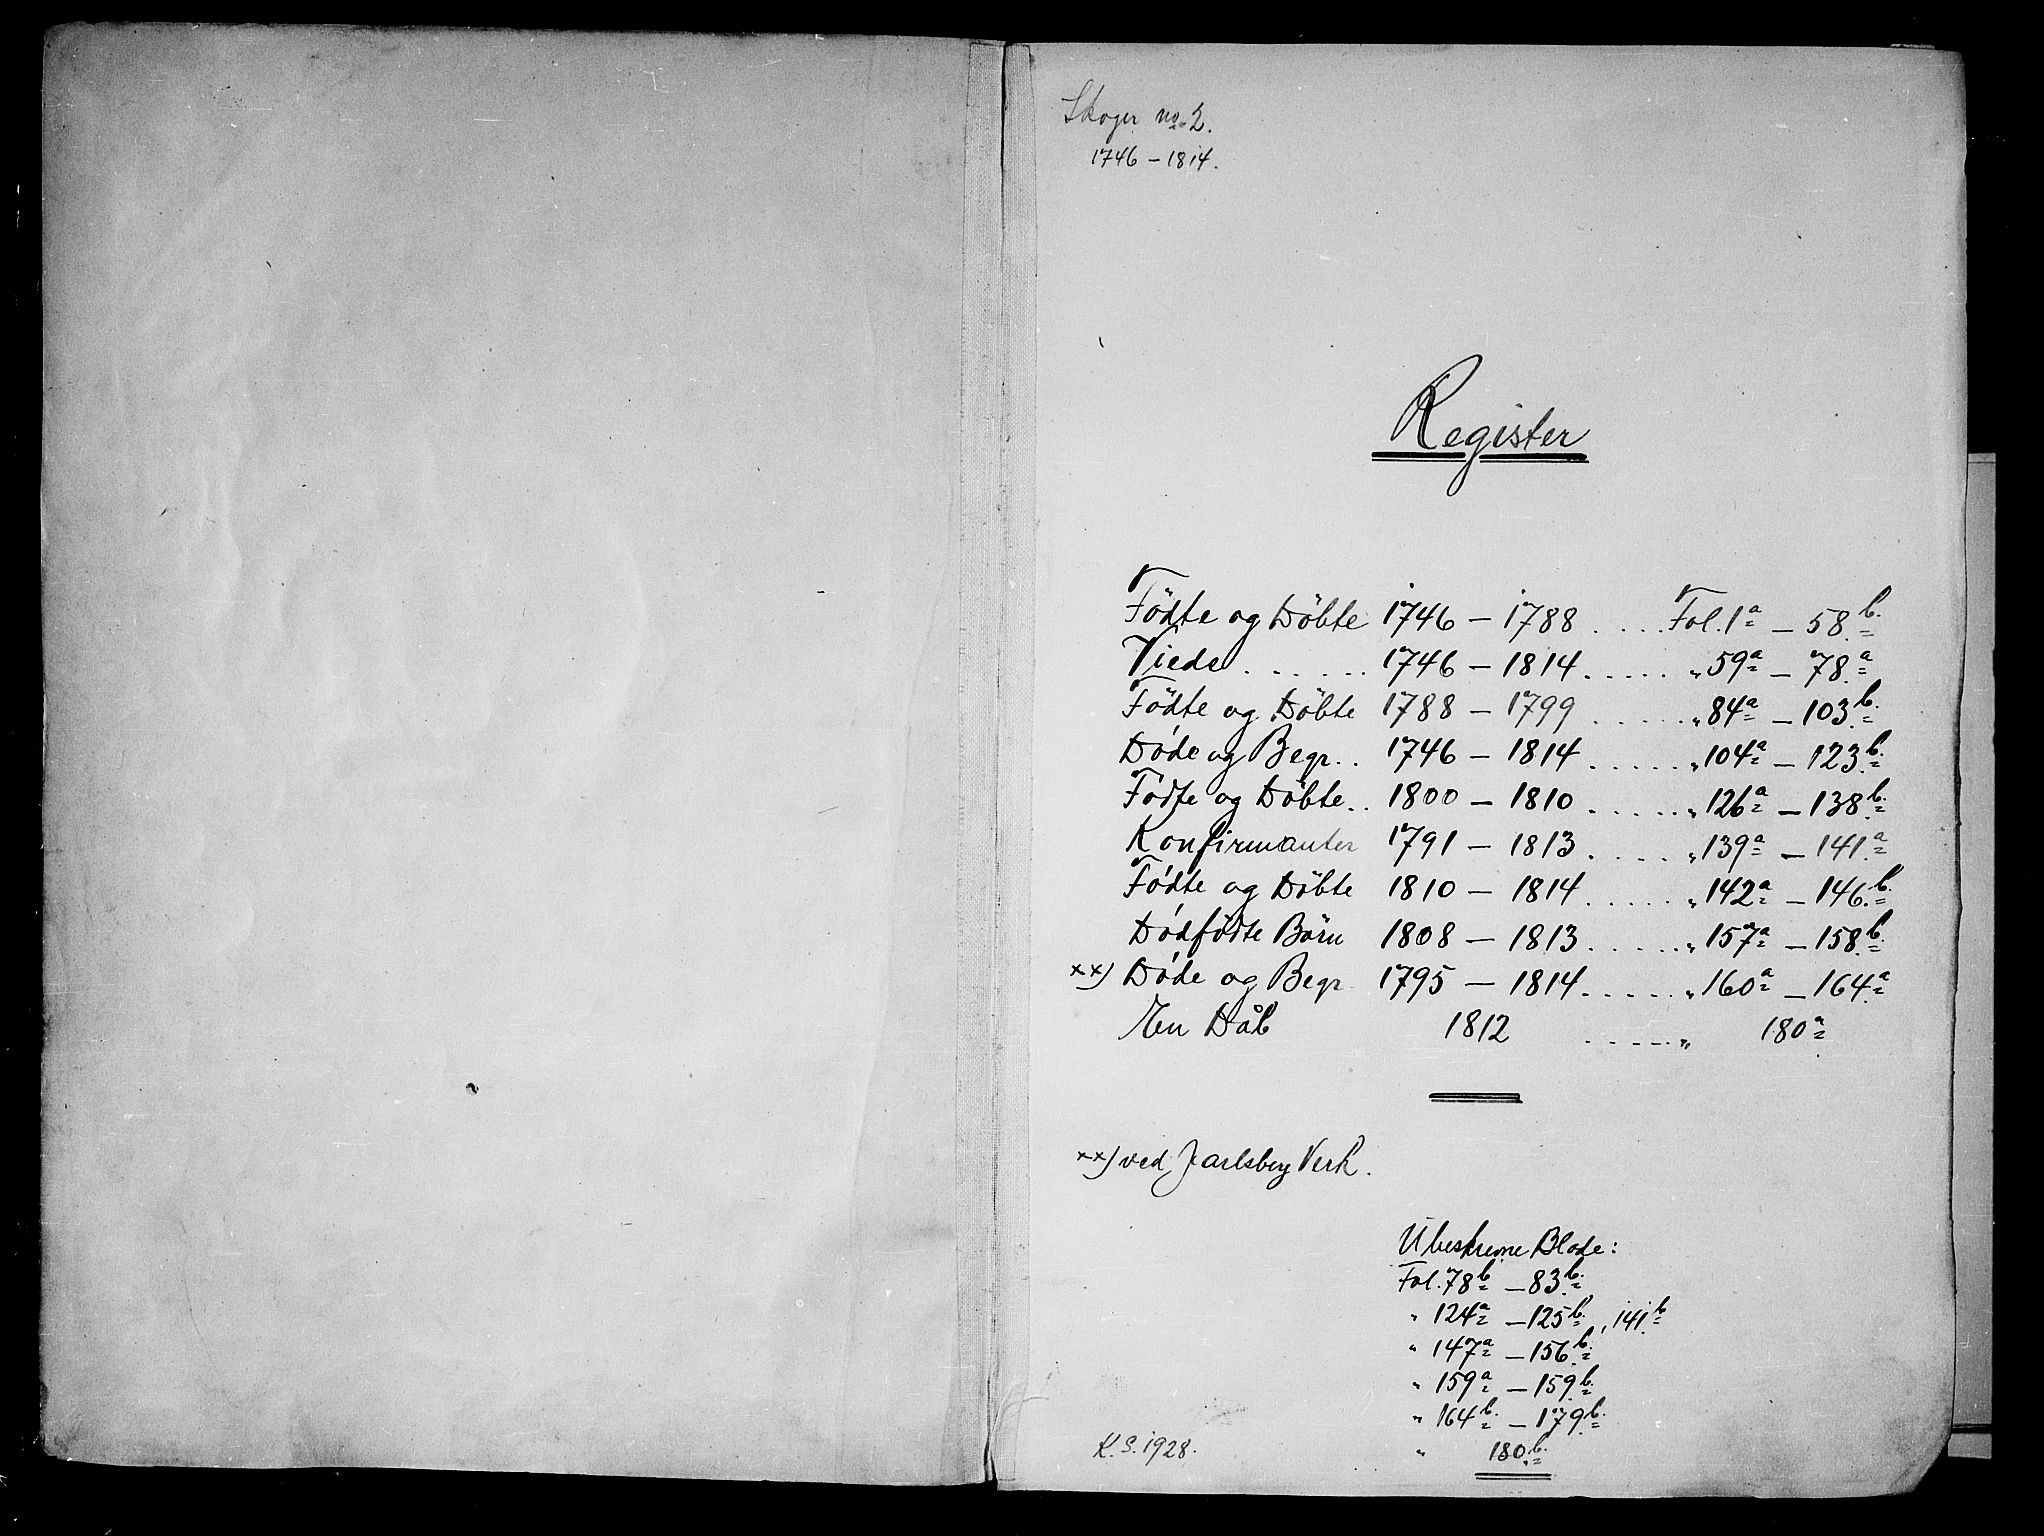 Skoger no 2.
1746 – 1814.
Register
Födte og Döbte 1746 – 1788 .... Fol. 1a – 58b.
Viede ...... 1746 – 1814 ..... " 59a – 78a
Födte og Döbte 1788 – 1799 ..... " 84a – 103b.
Døde og Begr. . 1746 – 1814 ..... " 104a – 123b.
Födte og Döbte . . 1800 – 1810 ..... " 126a – 138b.
Konfirmanter 1791 – 1813 .... " 139a – 141a
Födte og Döbte 1810 – 1814 ..... " 142a – 146b.
Dødfödte Börn 1808 – 1813 ..... " 157a – 158b.
xx) Døde og Begr 1795 – 1814 ..... " 160a – 164a
En Dåb 1812 ..... " 180a
xx) ved Jarlsberg Verk.
Ubeskrevne Blade:
Fol. 78b – 83b.
" 124a – 125b., 141b
" 147a – 156b.
" 159a – 159b.
" 164b. – 179b.
" 180b.
K. S. 1928.